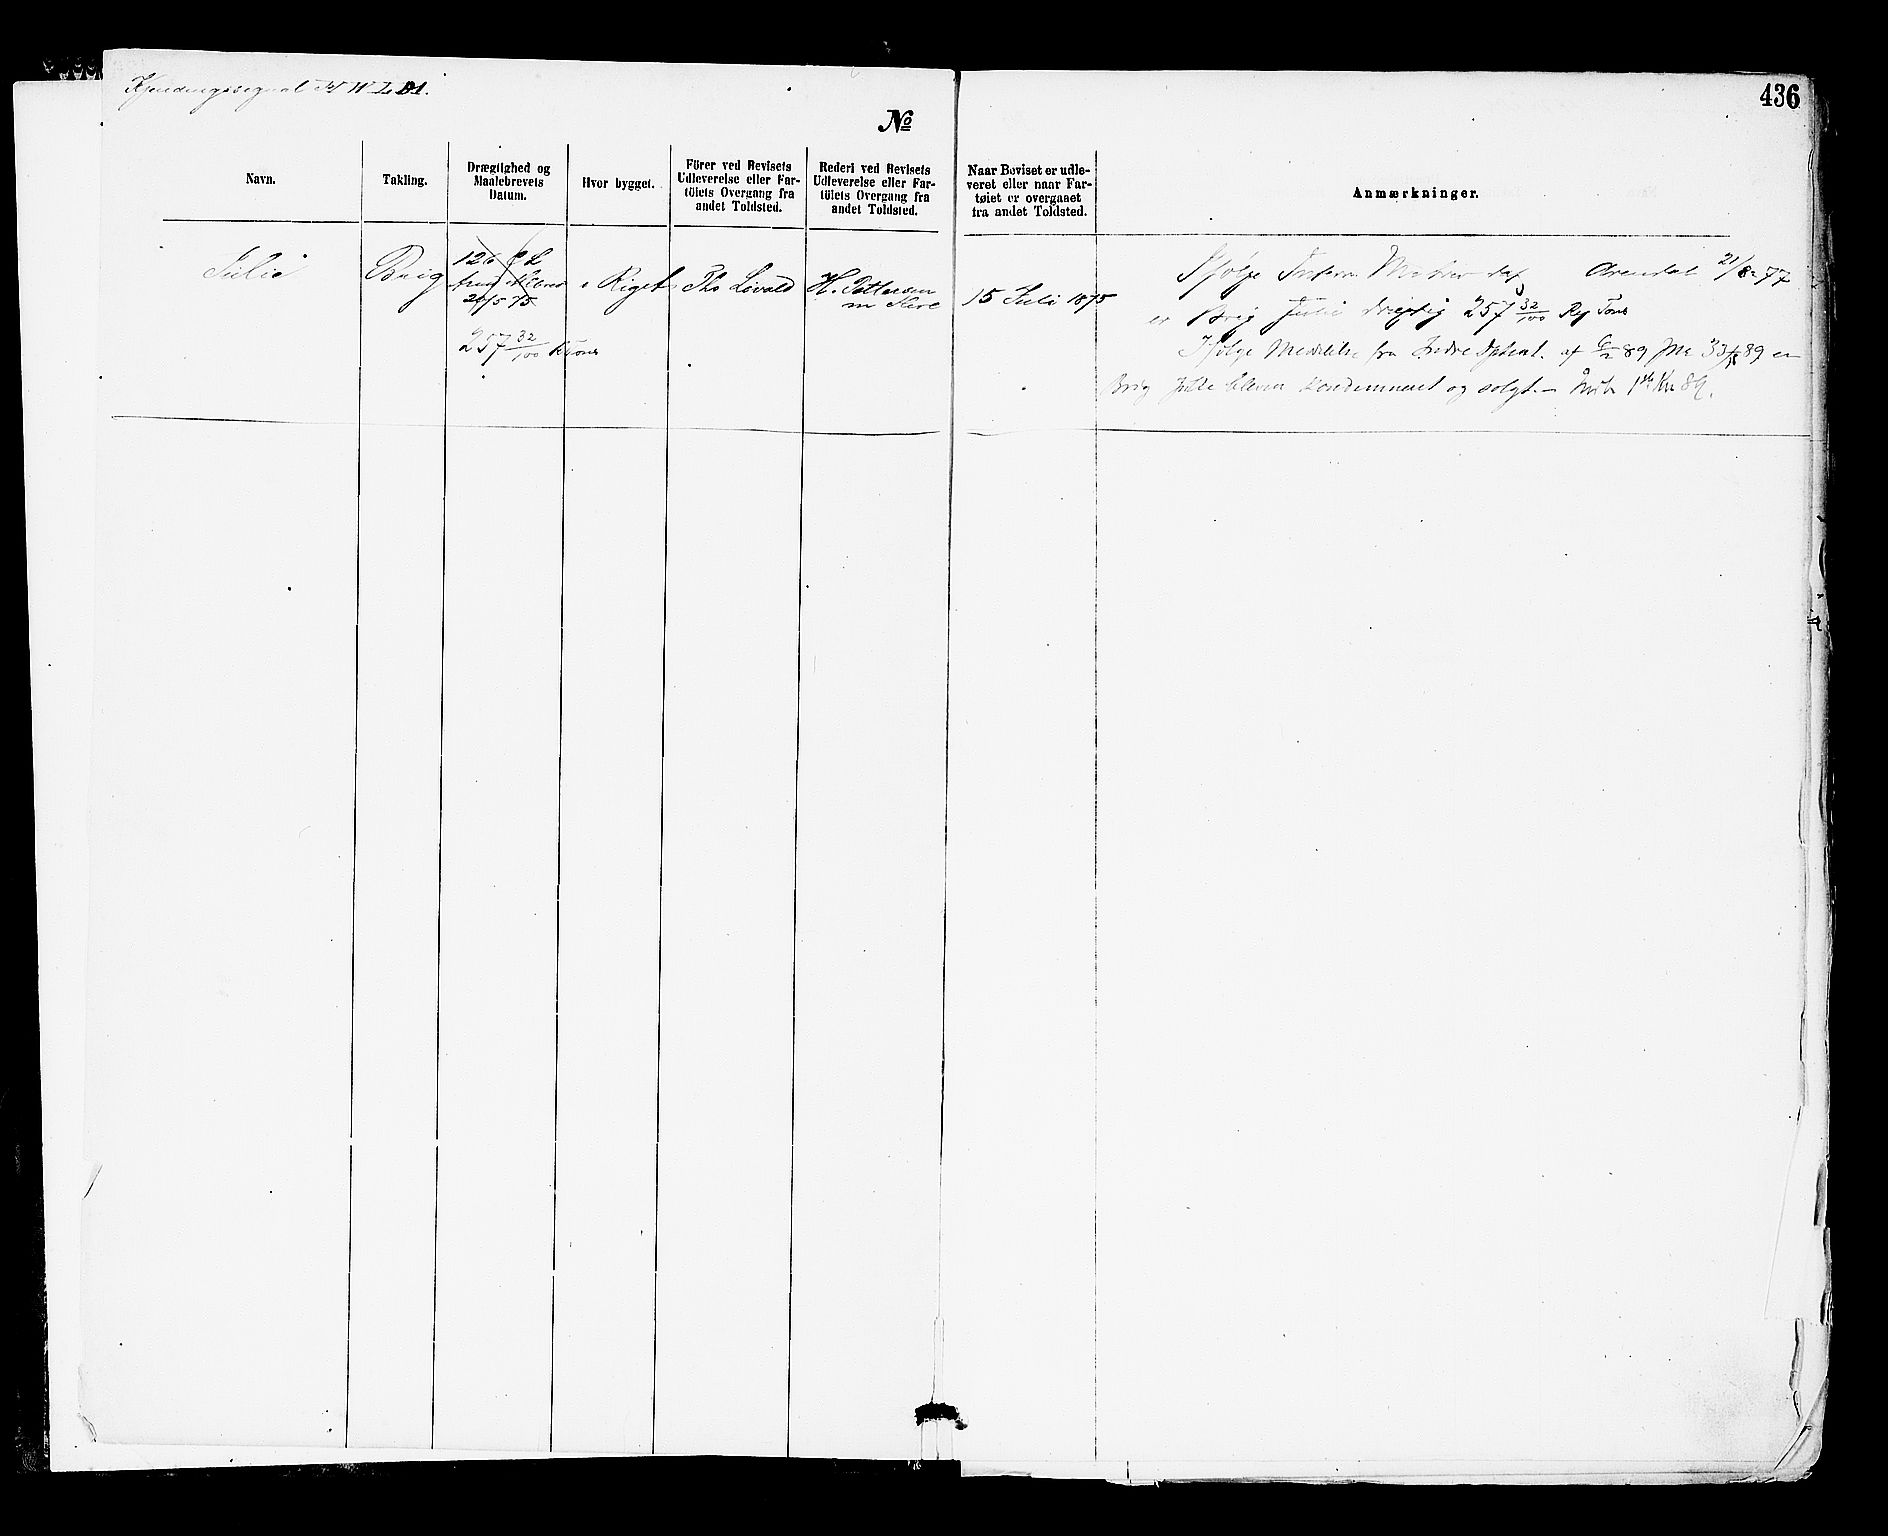 Kjendingssignal
№
436
Navn.
Takling.
Drægtighed og
Maalebrevets
Datum.
Hvor bygget.
Förer ved Bevisets
Udleverelse eller Far-
töiets Overgang fra
andet Toldsted.
Rederi ved Bevisets
Udleverelse eller Far-
töiets Overgang fra
andet Toldsted.
Naar Beviset er udle-
veret eller naar Far-
tøiet er overgaaet
fra andet Toldsted.
Anmærkninger.
Julie
Brig
20/5 75
257 32/100 RTons
i Riget
Ths Løvold
H. Pettersen
m Flere
15 Juli 1875
Ifølge Arendal 21/8 77
er Brig Julie drægtig 257 32/100 Reg Tons
Ifølge Meddelelse fra Indre Dptemt. af 6/2 89 er
Brig Julie bleven kondemneret og solgt.